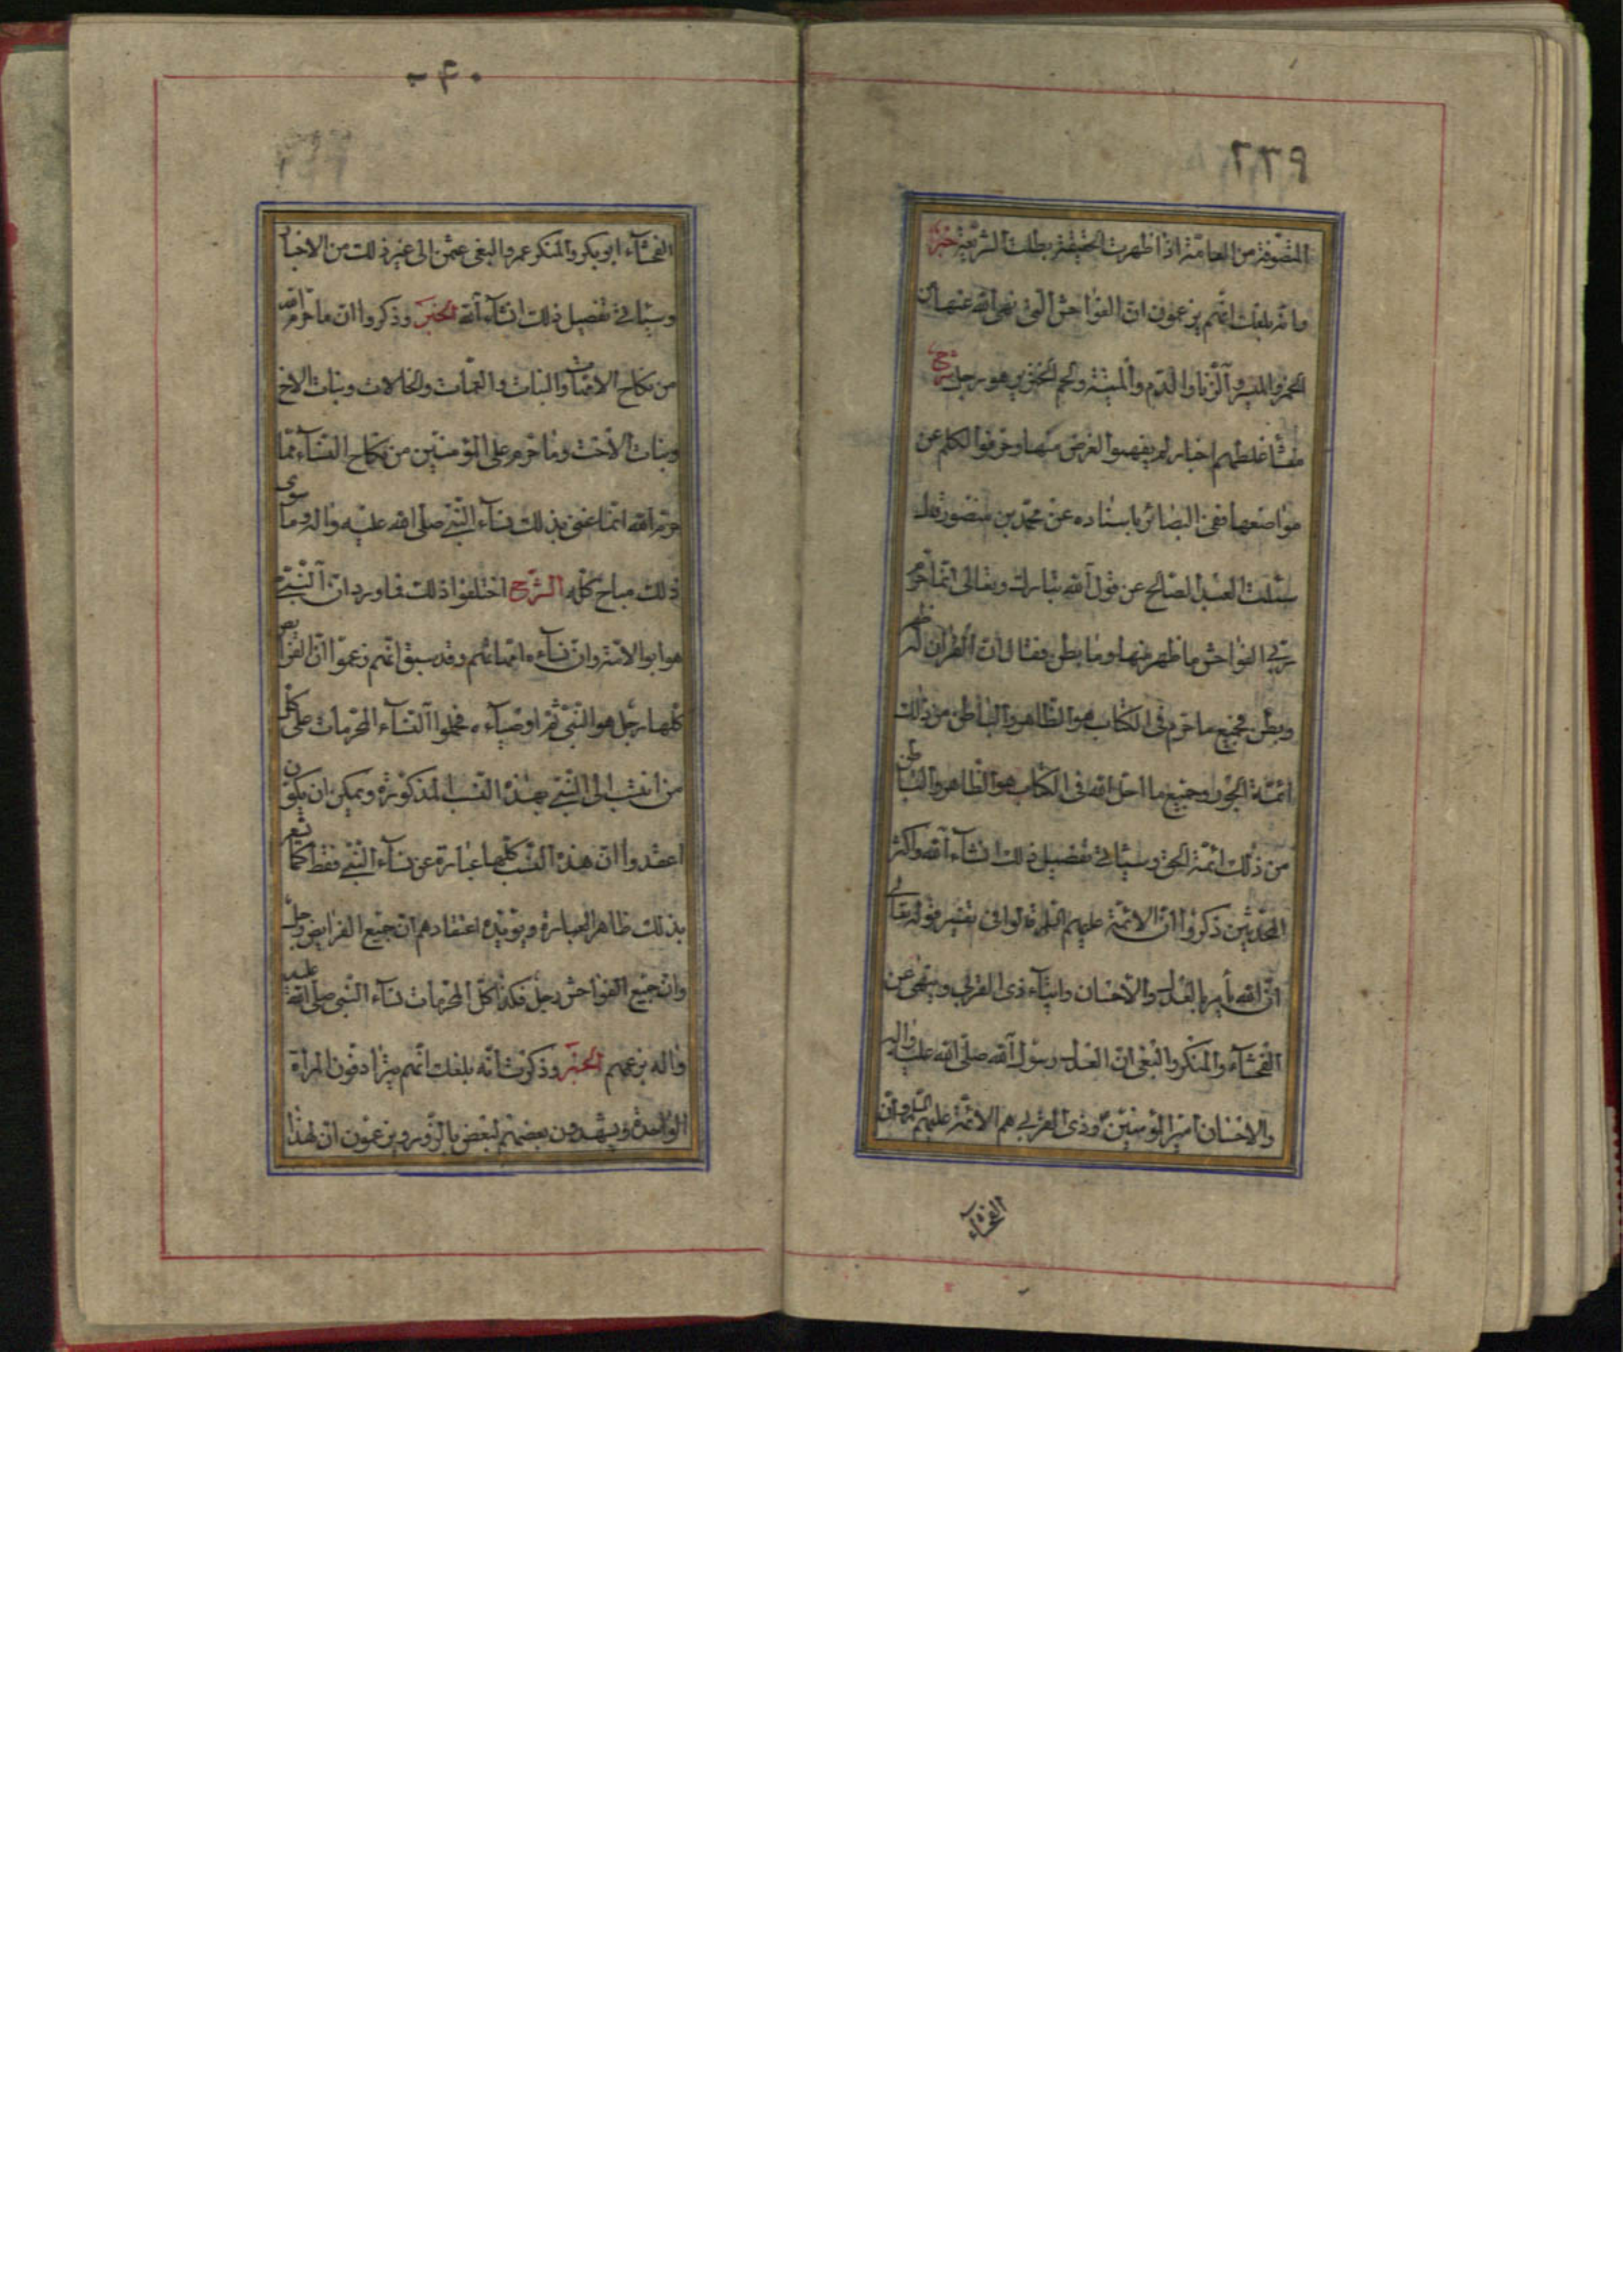 المتصوفة من العامة اذا ظهرت الحقيقة بطلت الشريعة خبر
وانه بلغك انهم يزعمون ان الفواحش التي نهى الله عنها من
الخمر والميسر والزنا والدم والميتة ولحم الخنزير هو رجل شرح
منشأ غلطهم اخبار لم يفهموا الغرض منها وحرفوا الكلم عن
مواضعها ففي البصائر باسناده عن محمد بن منصور قال
سئلت العبد الصالح عن قول الله تبارك وتعالى انما حرم
ربي الفواحش ما ظهر منها وما بطن فقال ان القران له ظهر
وبطن فجميع ما حرم في الكتاب هو الظاهر والباطن من ذلك
ائمة الجور وجميع ما احل الله في الكتاب هو الظاهر والباطن
من ذلك ائمة الحق وسيأتي تفصيل ذلك انشاء الله واكثر
المحدثين ذكروا ان الائمة عليهم السلام قالوا في تفسير قوله تعالى
ان الله يأمر بالعدل والاحسان وايتاء ذي القربى وينهى عن
الفحشاء والمنكر والبغي ان العدل رسول الله صلى الله عليه واله
والاحسان امير المؤمنين وذي القربى هم الائمة عليهم السلم وان
الفحشاء
٤٠
الفحشاء ابو بكر والمنكر عمر والبغي عثمن الى غير ذلك من الاخبار
وسيأتي تفصيل ذلك انشاء الله الخبر وذكروا ان ما حرم الله
من نكاح الامهات والبنات والعمات والخالات وبنات الاخ
وبنات الاخت وما حرم على المؤمنين من نكاح النساء مما
حرم الله انما عنى بذلك نساء النبي صلى الله عليه واله وما سوى
ذلك مباح كله الشرح اختلفوا ذلك فاورد ان النبي ص
هو ابو الامة وان نساءه امهاتهم وقد سبق انهم زعموا ان الفرايض
كلها رجل هو النبي ثم اوصياءه فحملوا النساء المحرمات على كل
من انتسب الى النبي بهذه النسب المذكورة ويمكن ان يكون
اعتقدوا ان هذه النسب كلها عبارة عن نساء النبي فقط كما يشعر
بذلك ظاهر العبارة ويؤيده اعتقادهم ان جميع الفرايض رجل
وان جميع الفواحش رجل فكذا كل المحرمات نساء النبي صلى الله عليه
واله بزعمهم الخبر وذكرت انه بلغك انهم يترادفون المراة
الواحدة ويشهدون بعضهم لبعض بالزور ويزعمون ان لهذا